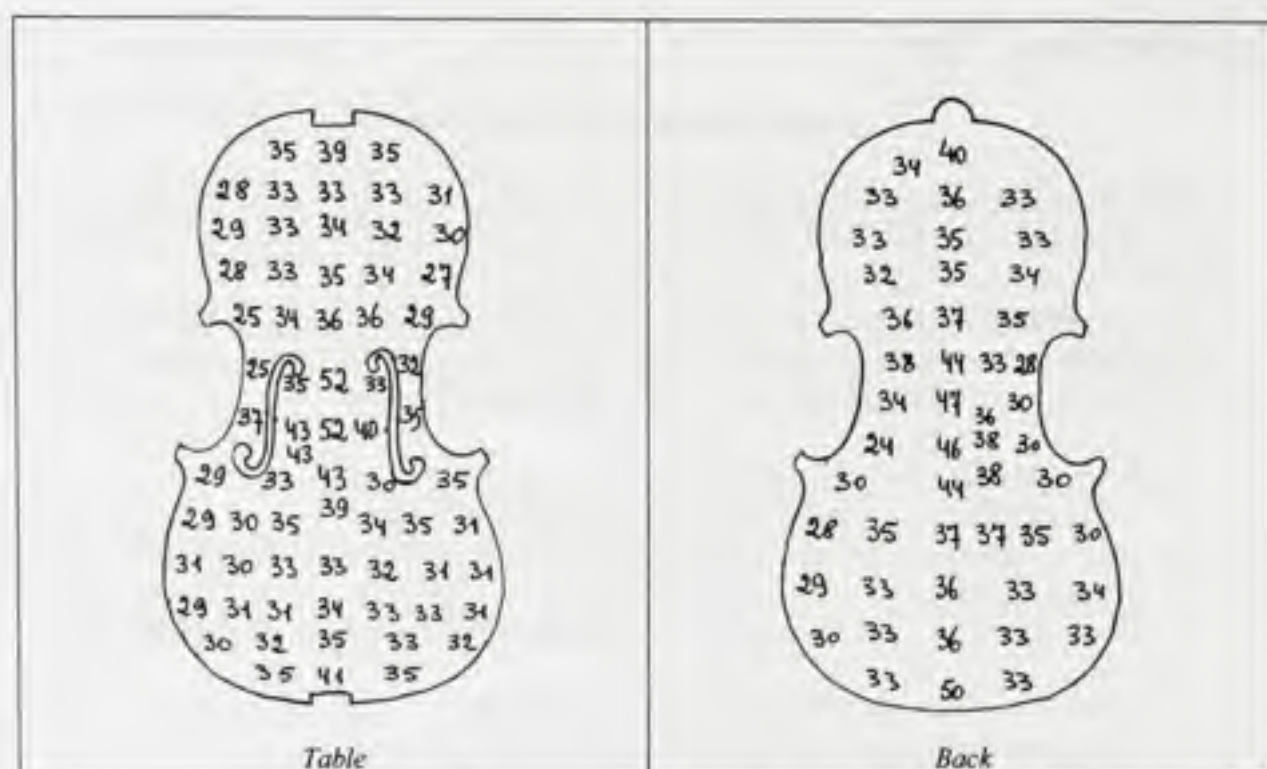 35 39 35
28 33 33 33 31
29 33 34 32 30
28 33 35 34 27
25 34 36 36 29
25 35 52 33 32
37 43 52 40 35
43
29 33 43 30 35
39
29 30 35 34 35 31
31 30 33 33 32 31 31
29 31 31 34 33 33 31
30 32 35 33 32
35 41 35
Table
34 40
33 36 33
33 35 33
32 35 34
36 37 35
38 44 33 28
34 47 36 30
24 46 38 30
30 44 38 30
28 35 37 37 35 30
29 33 36 33 34
30 33 36 33 33
33 50 33
Back